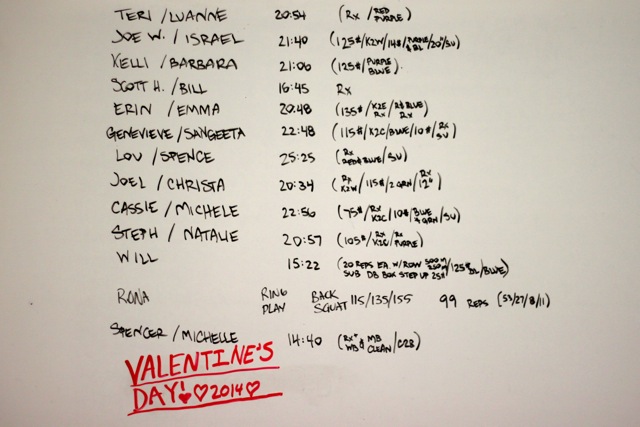 TERI / LUANNE 20:54 (Rx / RED PURPLE)
JOE W. / ISRAEL 21:40 (125#/K2W/14#/PURPLE & BL/20"/SU)
KELLI / BARBARA 21:06 (125#/PURPLE BLUE).
SCOTT H. / BILL 16:45 Rx
ERIN / EMMA 20:48 (135#/K2E Rx/R&BLUE Rx)
GENEVIEVE / SANGEETA 22:48 (115#/K2C/BLUE/10#/Rx SU)
LOU / SPENCE 25:25 (Rx RED&BLUE/SU)
JOEL / CHRISTA 20:34 (Rx K2W/115#/2 GRN/Rx 12")
CASSIE / MICHELE 22:56 (75#/Rx K2C/10#/BLUE & GRN/SU)
STEPH / NATALIE 20:57 (105#/Rx K2E/Rx PURPLE)
WILL 15:22 (20 REPS EA W/ROW 500M 250M/125# DL/BLUE)
SUB DB BOX STEP UP 25#
RONA RING PLAY BACK SQUAT 115/135/155 99 REPS (53/27/8/11)
SPENCER / MICHELLE 14:40 (Rx+ WB & MB CLEAN/C2B)
VALENTINE'S
DAY! ♡2014♡